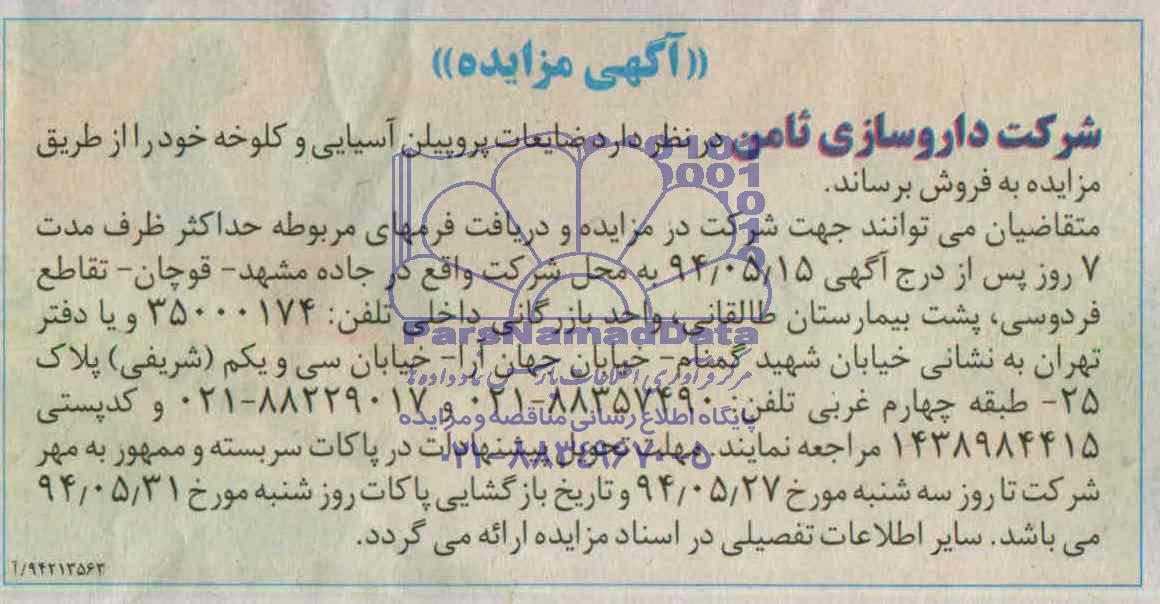 «آگهی مزایده»
شرکت داروسازی ثامن در نظر دارد ضایعات پروپیلن آسیایی و کلوخه خود را از طریق
مزایده به فروش برساند.
متقاضیان می توانند جهت شرکت در مزایده و دریافت فرمهای مربوطه حداکثر ظرف مدت
۷ روز پس از درج آگهی ۹۴/۰۵/۱۵ به محل شرکت واقع در جاده مشهد- قوچان- تقاطع
فردوسی، پشت بیمارستان طالقانی، واحد بازرگانی داخلی تلفن: ۳۵۰۰۰۱۷۴ و یا دفتر
تهران به نشانی خیابان شهید گمنام- خیابان جهان آرا- خیابان سی و یکم (شریفی) پلاک
۲۵- طبقه چهارم غربی تلفن: ۸۸۳۵۷۴۹۰-۰۲۱ و ۸۸۲۲۹۰۱۷-۰۲۱ و کدپستی
۱۴۳۸۹۸۴۴۱۵ مراجعه نمایند. مهلت تحویل پیشنهادات در پاکات سربسته و ممهور به مهر
شرکت تا روز سه شنبه مورخ ۹۴/۰۵/۲۷ و تاریخ بازگشایی پاکات روز شنبه مورخ ۹۴/۰۵/۳۱
می باشد. سایر اطلاعات تفصیلی در اسناد مزایده ارائه می گردد.
۹۴۲۱۳۵۶۳/آ
ParsNamadData
پایگاه اطلاع رسانی مناقصه و مزایده
۰۲۱-۸۸۳۴۹۶۷۰-۵